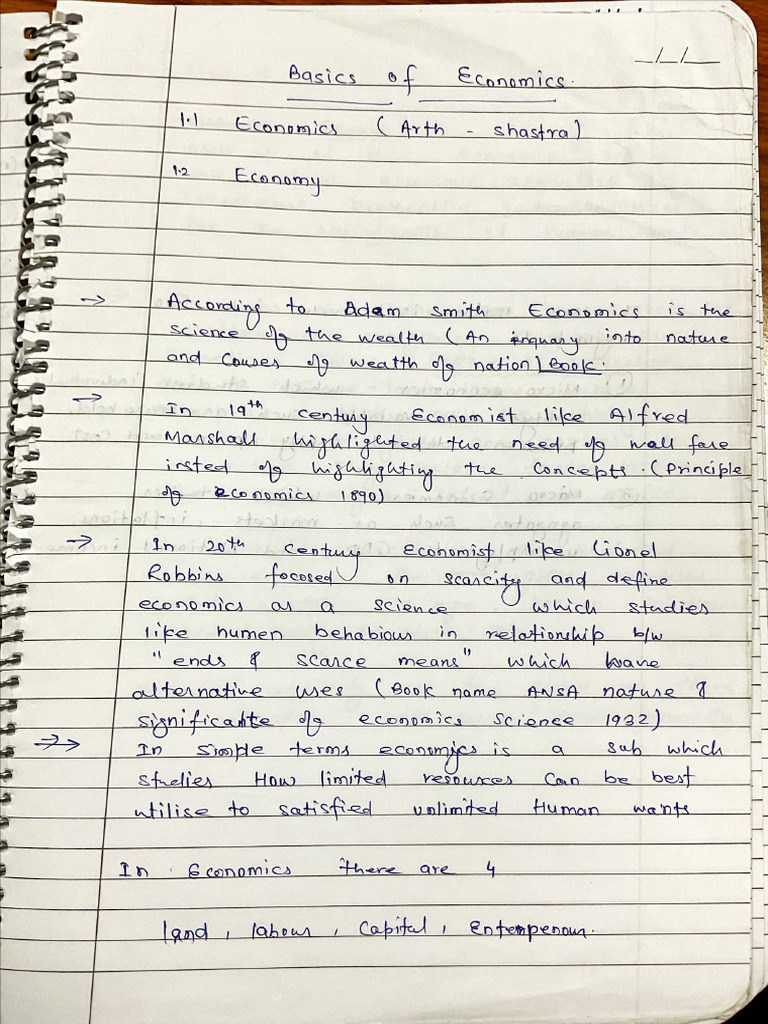 _/_/_
Basics of Economics.
1.1 Economics (Arth - shastra)
1.2 Economy
→ According to Adam smith Economics is the
science of the wealth (An inquary into nature
and Couses of wealth of nation) Book.
→ In 19th century Economist like Alfred
Marshall highlighted the need of wall fare
insted of highlighting the Concepts. (Principle
of economics 1890)
→ In 20th century economist like Lionel
Robbins focosed on scarcity and define
economics as a science which studies
like humen behabious in relationship b/w
"ends & scarce means" which have
alternative uses (Book name ANSA nature &
significante of economics science 1932)
→ In simple terms economics is a sub which
studies How limited resources Can be best
utilise to satisfied unlimited Human wants
In Economics there are 4
land, labour, Capital, Enterpenour.